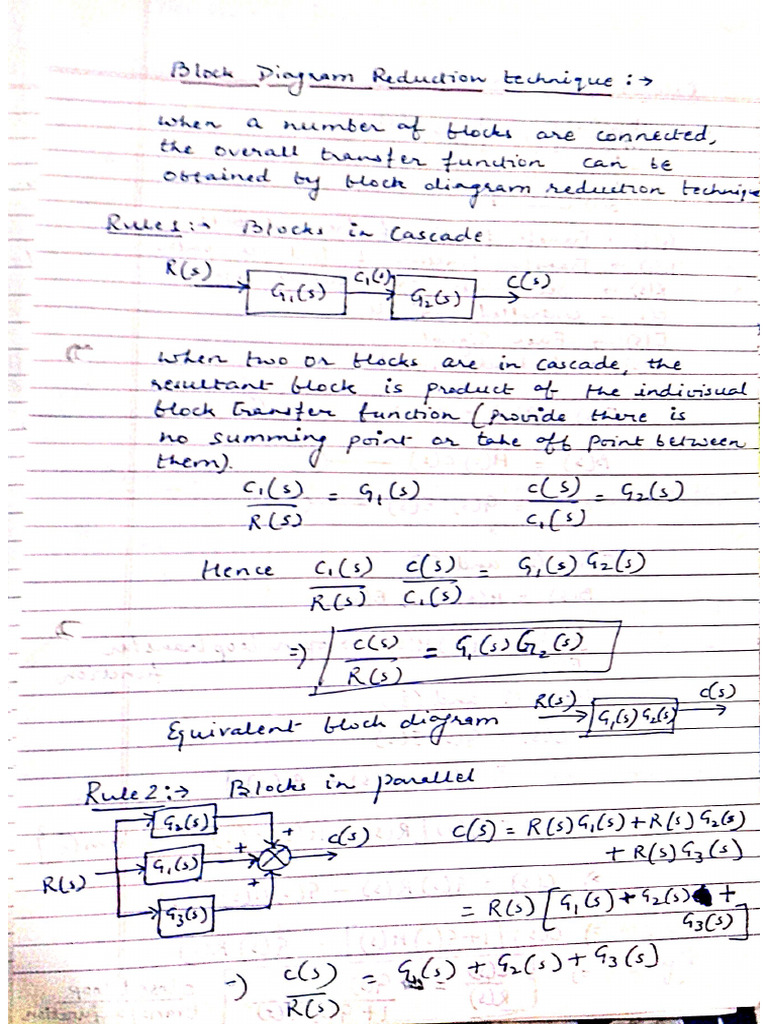 Block Diagram Reduction technique :→
when a number of blocks are connected,
the overall transfer function can be
obtained by block diagram reduction technique
Rule 1 :→ Blocks in Cascade
R(s) G₁(s) C₁(s) G₂(s) C(s)
when two or blocks are in cascade, the
resultant block is product of the indivisual
block transfer function (provide there is
no summing point or take off point between
them).
C₁(s)/R(s) = G₁(s) C(s)/C₁(s) = G₂(s)
Hence C₁(s)/R(s) C(s)/C₁(s) = G₁(s) G₂(s)
⇒ C(s)/R(s) = G₁(s) G₂(s)
Equivalent block diagram R(s) G₁(s) G₂(s) C(s)
Rule 2 :→ Blocks in parallel
G₂(s) + C(s) = R(s) G₁(s) + R(s) G₂(s)
R(s) G₁(s) + C(s) + R(s) G₃(s)
G₃(s) + = R(s) [G₁(s) + G₂(s) +
G₃(s)]
⇒ C(s)/R(s) = G₁(s) + G₂(s) + G₃(s)